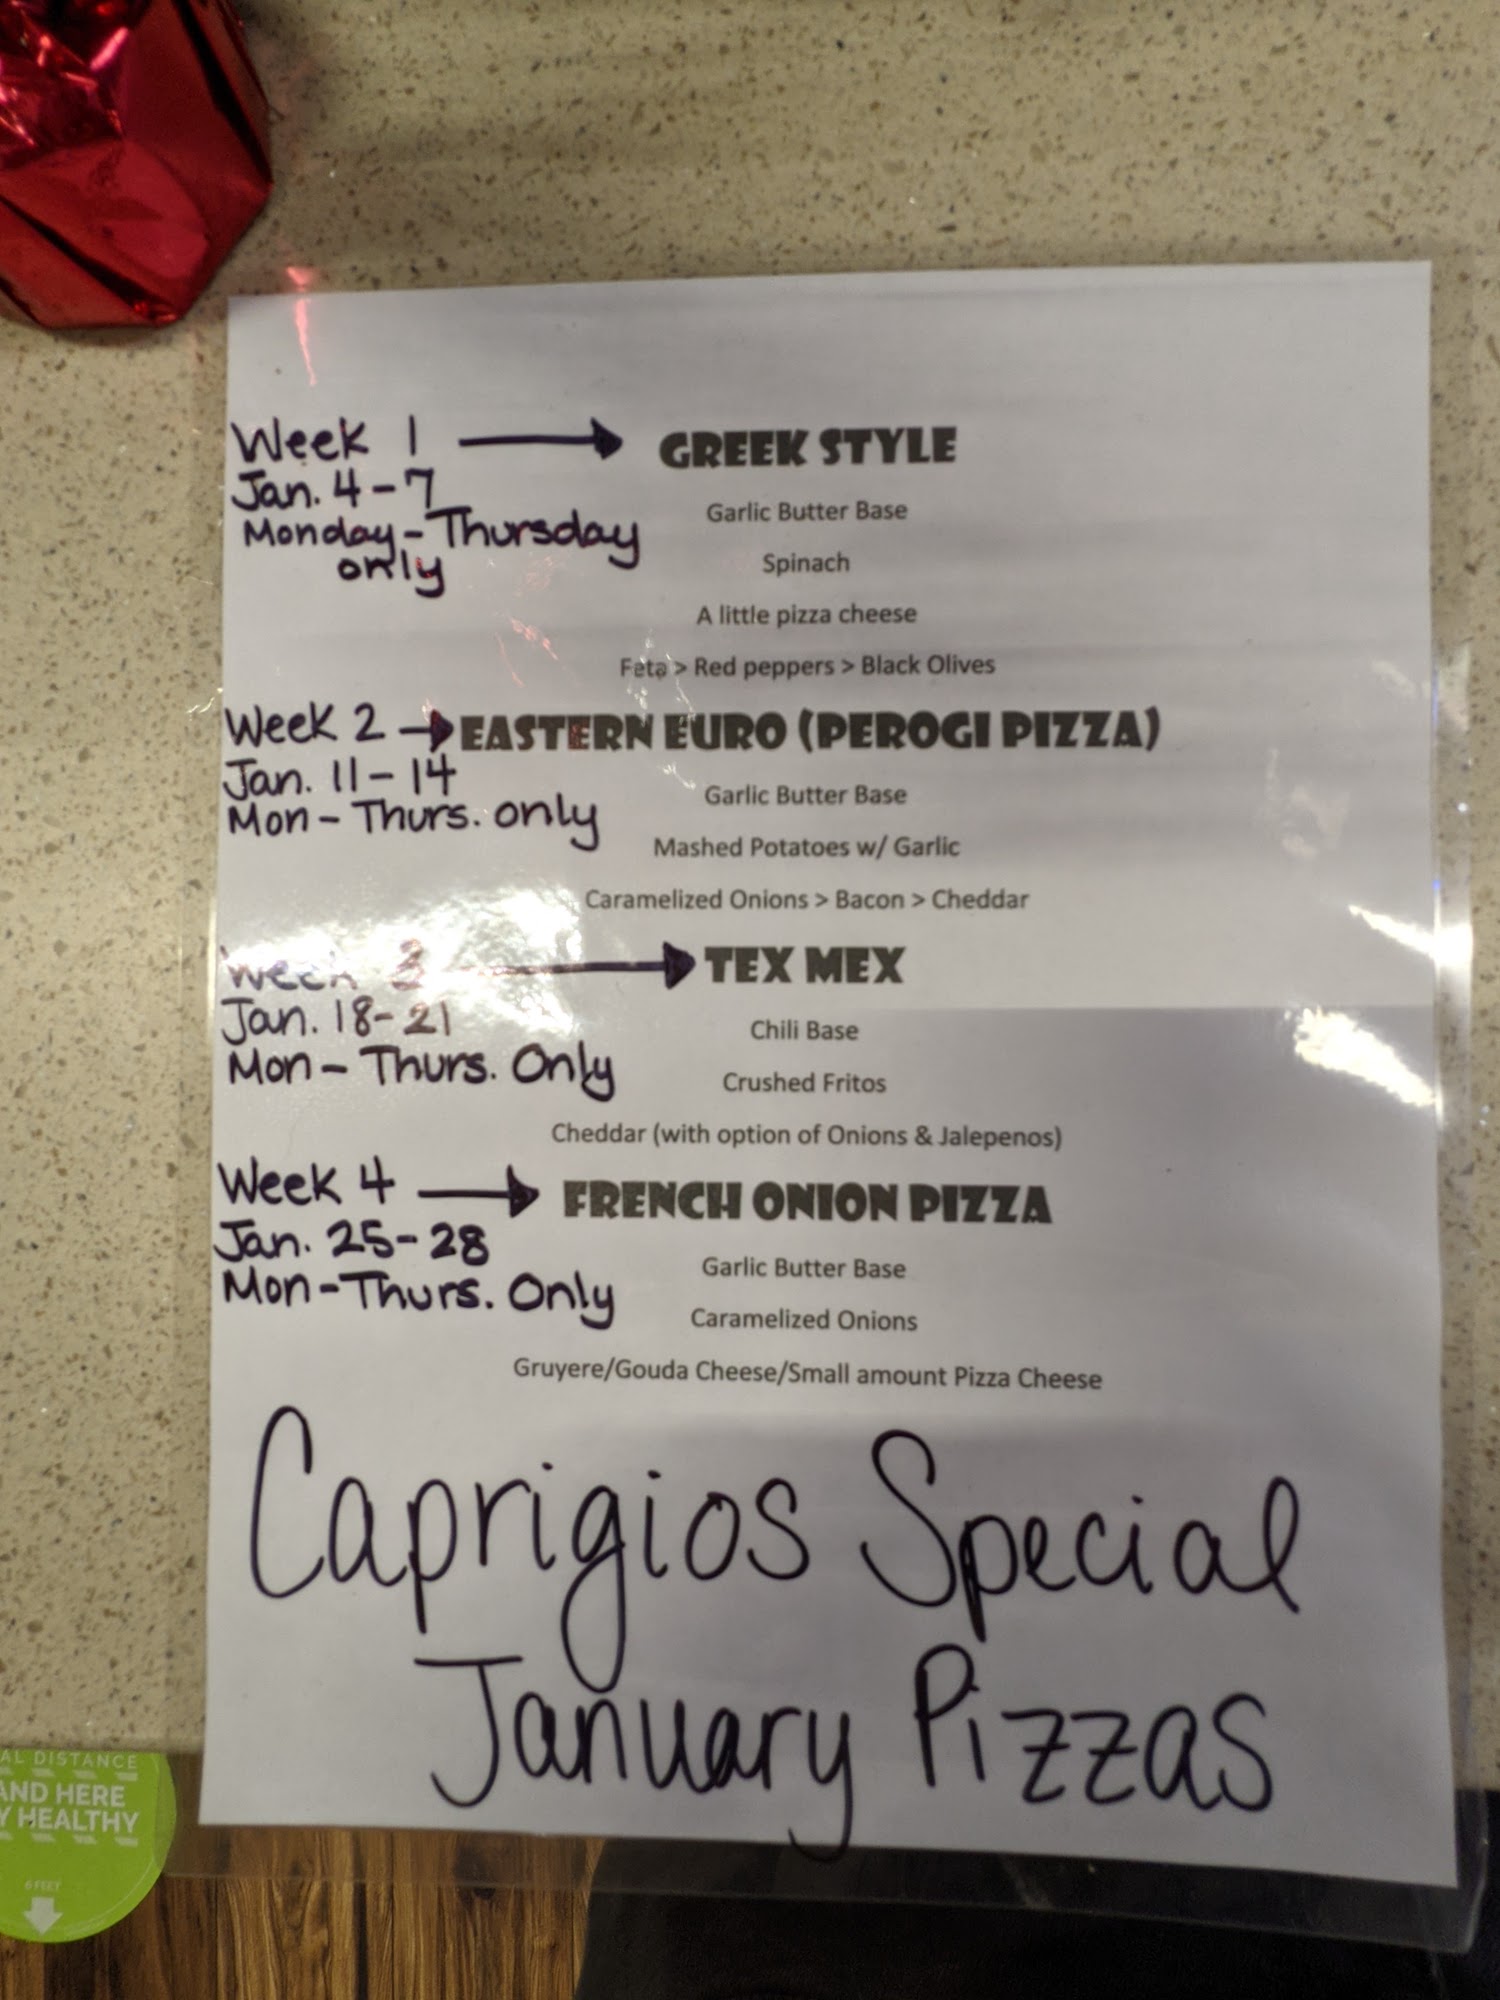 Week 1 → GREEK STYLE
Jan. 4-7
Garlic Butter Base
Monday-Thursday
only
Spinach
A little pizza cheese
Feta > Red peppers > Black Olives
Week 2 → EASTERN EURO (PEROGI PIZZA)
Jan. 11-14
Garlic Butter Base
Mon-Thurs. only
Mashed Potatoes w/ Garlic
Caramelized Onions > Bacon > Cheddar
Week 3 → TEX MEX
Jan. 18-21
Chili Base
Mon-Thurs. Only
Crushed Fritos
Cheddar (with option of Onions & Jalepenos)
Week 4 → FRENCH ONION PIZZA
Jan. 25-28
Garlic Butter Base
Mon-Thurs. Only
Caramelized Onions
Gruyere/Gouda Cheese/Small amount Pizza Cheese
Caprigios Special
January Pizzas
AL DISTANCE
AND HERE
Y HEALTHY
6 FEET